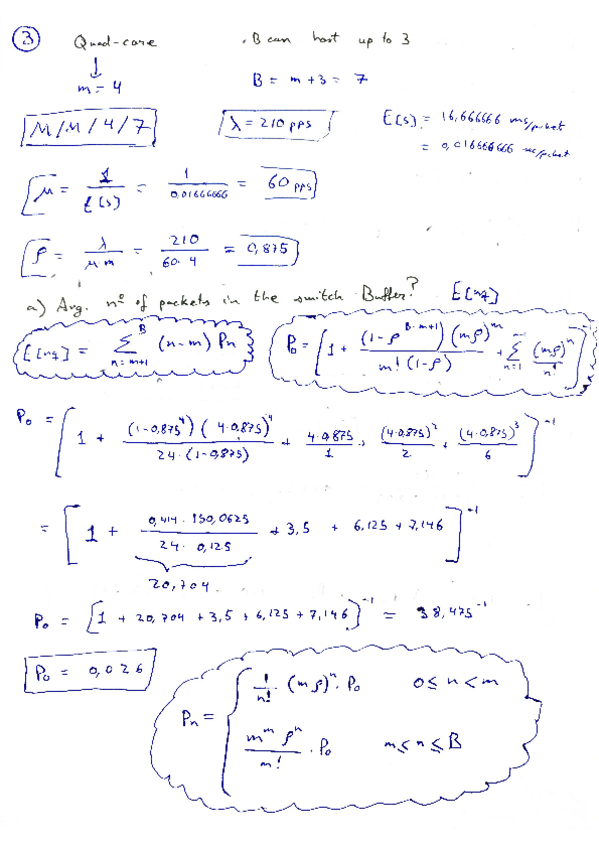 ③ Quad-core . B can host up to 3
↓
m = 4 B = m + 3 = 7
M/M/4/7 λ = 210 pps E[s] = 16,666666 ms/packet
= 0,016666666
μ = 1/E(s) = 1/0,01666666 = 60 pps
ρ = λ/μ·m = 210/60·4 = 0,875
a) Avg. nº of packets in the switch Buffer? E[nq]
E[nq] = Σ_{n=m+1}^{B} (n-m) Pn P₀ = [1 + (1-ρ^{B-m+1})(mρ)^m / m!(1-ρ) + Σ_{n=1} (mρ)^n / n!]^{-1}
P₀ = [1 + (1-0,875⁴)(4·0,875)⁴ / 24·(1-0,875) + 4·0,875/1 + (4·0,875)²/2 + (4·0,875)³/6]^{-1}
= [1 + 0,414·150,0625 / 24·0,125 + 3,5 + 6,125 + 7,146]^{-1}
20,704
P₀ = [1 + 20,704 + 3,5 + 6,125 + 7,146]^{-1} = 38,475^{-1}
P₀ = 0,026
Pn = { 1/n! · (mρ)^n · P₀ 0 ≤ n < m
m^m ρ^n / m! · P₀ m ≤ n ≤ B